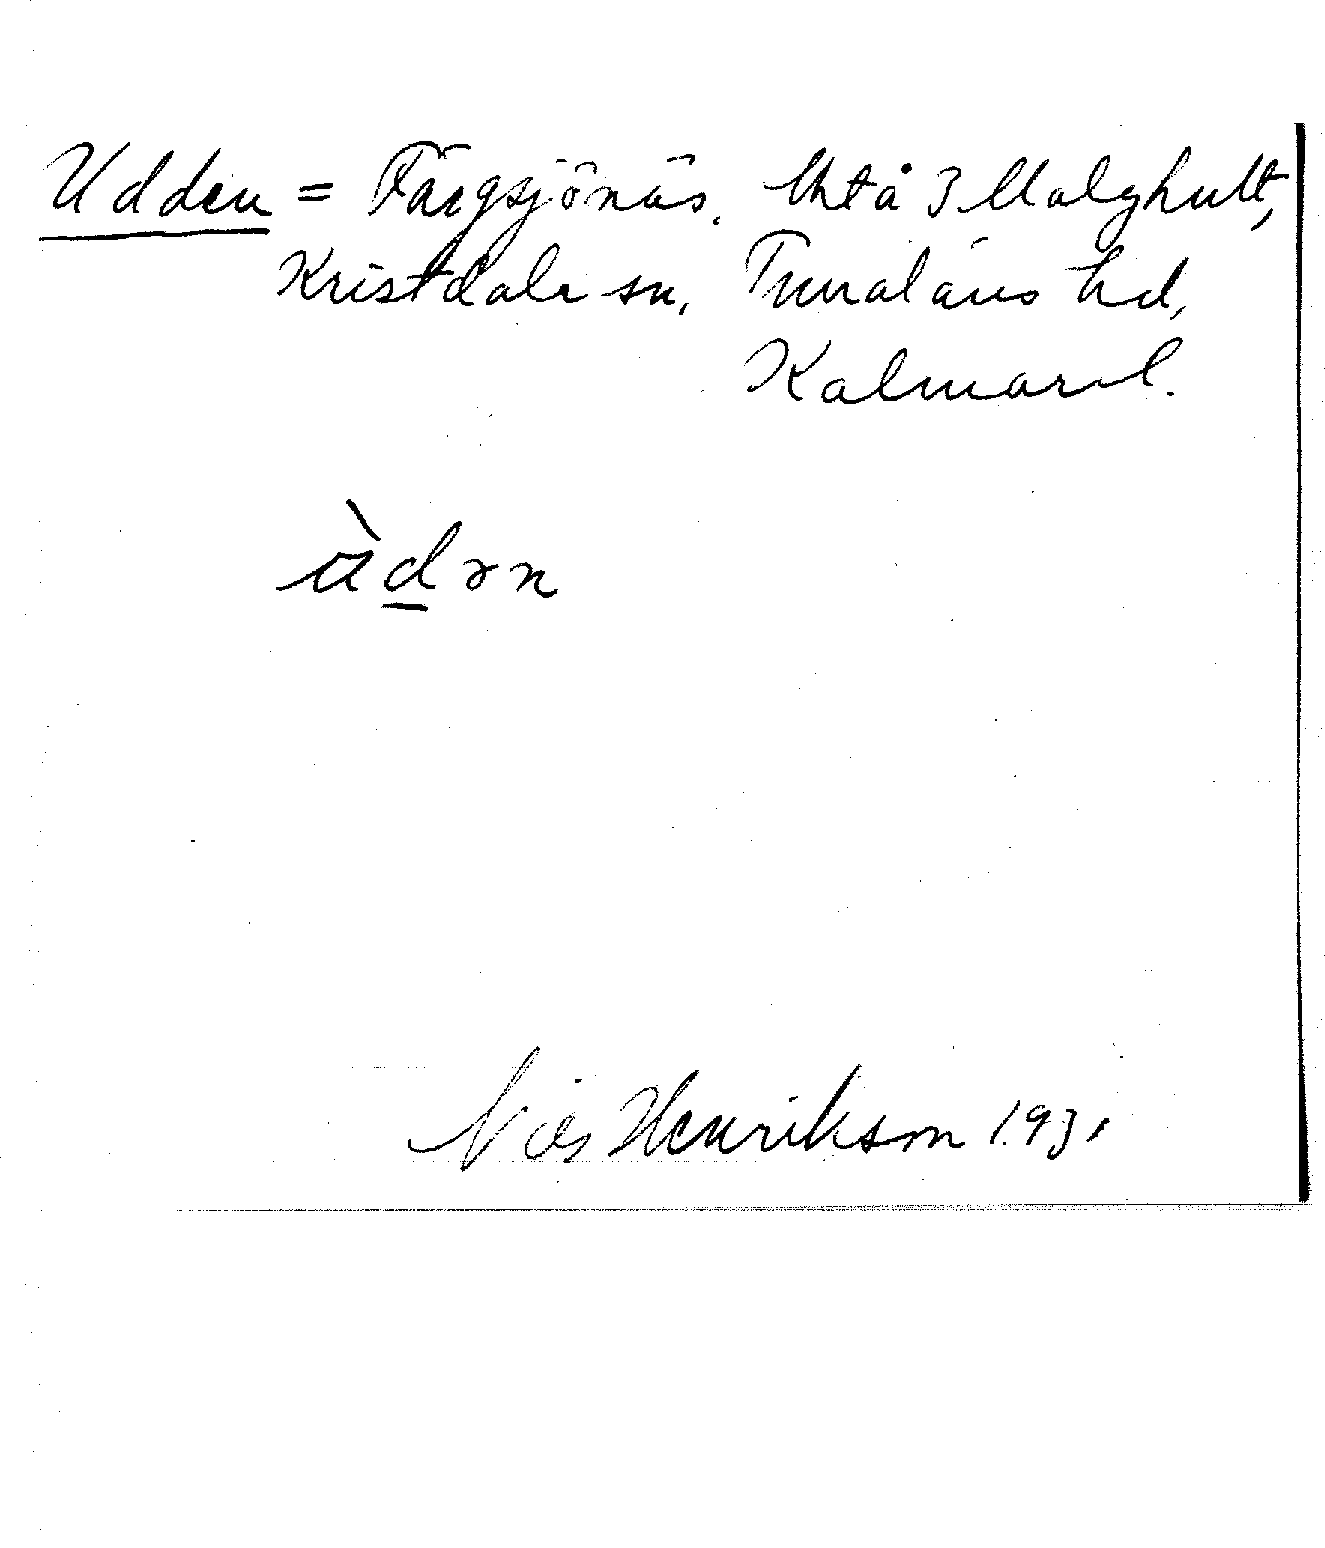 Udden = Färgsjönäs. Uhtå 3 Malghult,
Kristdala sn, Tunaläns hd,
Kalmar l.
ùdən
Nils Henrikson 1931